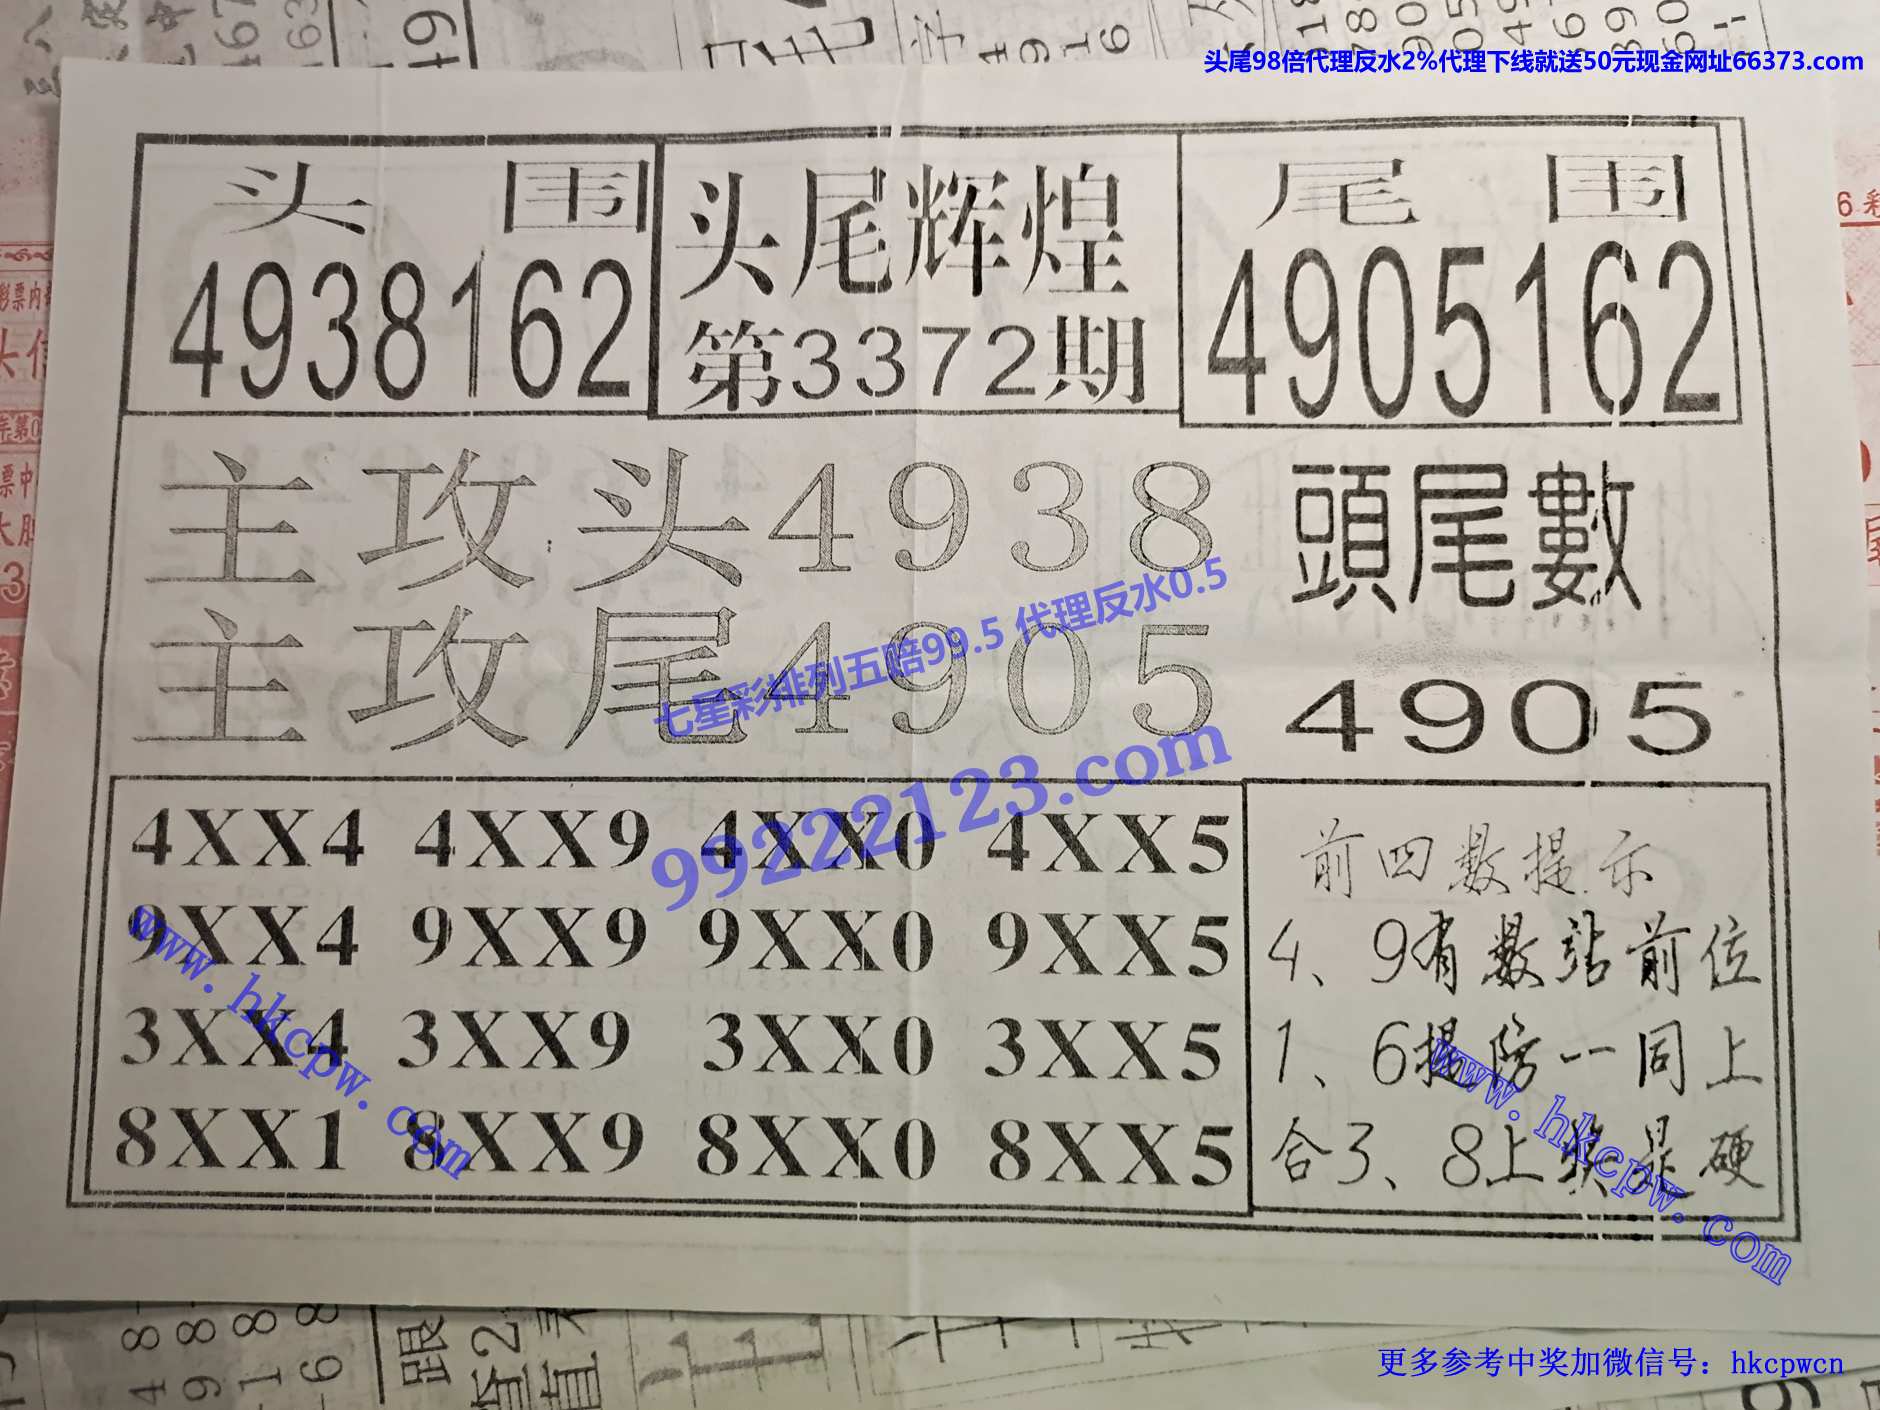 头尾98倍代理反水2%代理下线就送50元现金网址66373.com
头 围
4938162
头尾辉煌
第3372期
尾 围
4905162
主攻头4938
主攻尾4905
頭尾數
4905
七星彩排列五赔99.5 代理反水0.5
99222123.com
4XX4 4XX9 4XX0 4XX5
9XX4 9XX9 9XX0 9XX5
3XX4 3XX9 3XX0 3XX5
8XX1 8XX9 8XX0 8XX5
www.hkcpw.com
前四数提示
4、9有数站前位
1、6提防一同上
合3、8上奖是硬
www.hkcpw.com
更多参考中奖加微信号：hkcpwcn